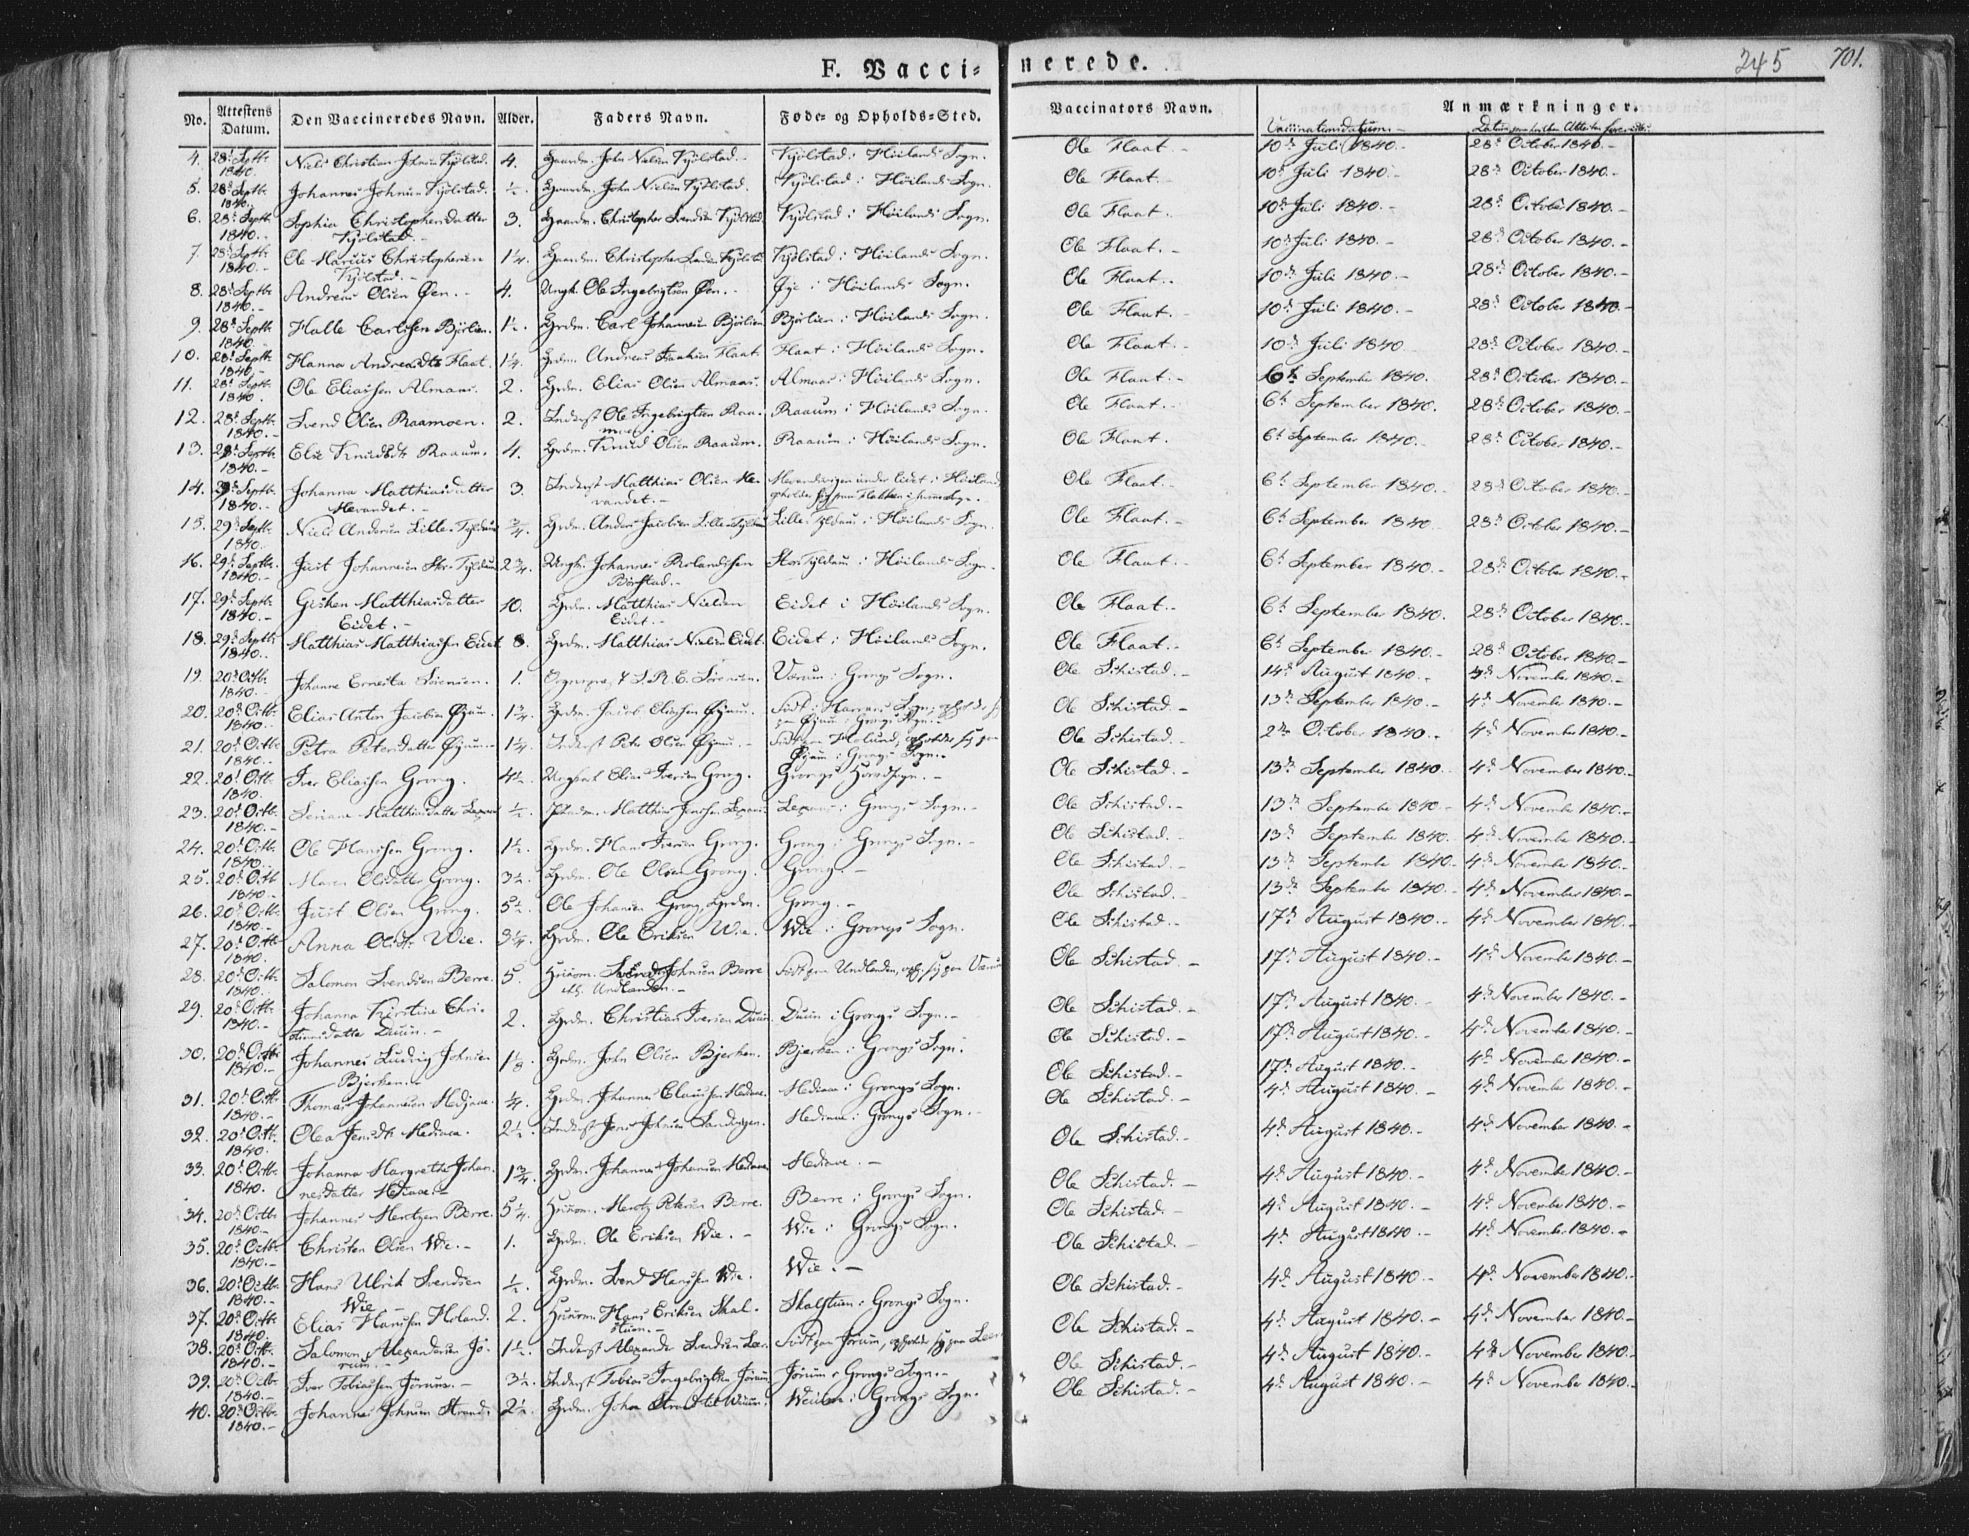 F. Vacci-
nerede.
245
701.
No.
Attestens Datum.
Den Vaccineredes Navn.
Alder.
Faders Navn.
Føde- og Opholds-Sted.
Vaccinators Navn.
Anmærkninger.
Vaccinationsdatum.
4. 28d Septbr. 1840. Niels Christian Johnsen Kjølstad. 4. Gaardm. John Nielsen Kjølstad. Kjølstad i Høilands Sogn. Ole Flaat. 10de Juli 1840. 28de October 1840.
5. 28d Septbr. 1840. Johannes Johnsen Kjølstad. ½. Gaardm. John Nielsen Kjølstad. Kjølstad i Høilands Sogn. Ole Flaat. 10de Juli 1840. 28de October 1840.
6. 28d Septbr. 1840. Sophia Christophersdatter Kjølstad. 3. Gaardm. Christopher Svendsen Kjølstad. Kjølstad i Høilands Sogn. Ole Flaat. 10de Juli 1840. 28de October 1840.
7. 28d Septbr. 1840. Ole Marius Christophersen Kjølstad. 1¼. Gaardm. Christopher Kjølstad Kjølstad i Høilands Sogn. Ole Flaat. 10de Juli 1840. 28de October 1840.
8. 28d Septbr. 1840. Andreas Olsen Øen. 4. Ungk. Ole Ingebrigtsen Øen. Øie i Høilands Sogn. Ole Flaat. 10de Juli 1840. 28de October 1840.
9. 28d Septbr. 1840. Halle Carlsen Bjørlien. 1½. Grdm. Carl Johannesen Bjørlien Bjørlien i Høilands Sogn. Ole Flaat. 10de Juli 1840. 28de October 1840.
10. 28d Septbr. 1840. Hanna Andreasdtr Flaat. 1¼. Grdm. Andreas Flaat. Flaat i Høilands Sogn. Ole Flaat. 10de Juli 1840. 28de October 1840.
11. 28d Septbr. 1840. Ole Eliassen Almaas. 2. Grdm. Elias Olsen Almaas. Almaas i Høilands Sogn. Ole Flaat. 6te September 1840. 28de October 1840.
12. 28d Septbr. 1840. Svend Olsen Raamoen. 2. Inderst Ole Ingebrigtsen Raamoen. Raaum i Høilands Sogn. Ole Flaat. 6te September 1840. 28de October 1840.
13. 28d Septbr. 1840. Else Knudsdtr Raaum. 4. Grdm. Knud Olsen Raaum. Raaum i Høilands Sogn. Ole Flaat. 6te September 1840. 28de October 1840.
14. Septbr. 1840. Johanna Matthiasdatter Mevandet. 3. Inderst Matthias Olsen Mevandet. Ole Flaat. 6te September 1840. 28de October 1840.
15. 29d Septbr. 1840. Niels Andersen Lille Tyldum ¾. Grdm. Anders Jacobsen Lille Tyldum Lille Tyldum i Høilands Sogn. Ole Flaat. 6te September 1840. 28de October 1840.
16. 29d Septbr. 1840. Just Johannesen Stor Tyldum 2¾. Ungk. Johannes Rolandsen Børstad. Stor Tyldum i Høilands Sogn. Ole Flaat. 6te September 1840. 28de October 1840.
17. 29d Septbr. 1840. Gisken Matthiasdatter Eidet. 10. Grdm. Matthias Nielsen Eidet. Eidet i Høilands Sogn. Ole Flaat. 6te September 1840. 28de October 1840.
18. 29d Septbr. 1840. Matthias Matthiassen Eidet 8. Grdm. Matthias Nielsen Eidet. Eidet i Høilands Sogn. Ole Flaat. 6te September 1840. 28de October 1840.
19. 20d Octbr. 1840. Johanne Ernesta Sørensen. 1. Sognepr. S. R. E. Sørensen. Værum i Grongs Sogn. Ole Schistad. 14de August 1840. November 1840.
20. 20d Octbr. 1840. Elias Anton Jacobsen Øyum. 1¾. Grdm. Jacob Eliassen Øyum. Ole Schistad. 13de September 1840. 4de November 1840.
21. 20d Octbr. 1840. Petra Petersdatter Øyum. 1¼. Inderst Peter Olsen Øyum. Ole Schistad. 2den October 1840. 4de November 1840.
22. 20d Octbr. 1840. Iver Eliassen Grong. 4½. Ungkarl Elias Iversen Grong. Grongs Hovedsogn. Ole Schistad. 13de September 1840. 4de November 1840.
23. 20d Octbr. 1840. Seriana Matthiasdatter ½. Matthias Jensen i Grongs Sogn. Ole Schistad. 13de September 1840. 4de November 1840.
24. 20d Octbr. 1840. Ole Hansen Grong. 1½. Grdm. Hans Iversen Grong. Grong i Grongs Sogn. Ole Schistad. 13de September 1840. 4de November 1840.
25. 20d Octbr. 1840. Maren Olsdatter Grong. 3½. Grdm. Ole Olsen Grong. Grong. Ole Schistad. 13de September 1840. 4de November 1840.
26. 20d Octbr. 1840. Just Olsen Grong. 5½. Ole Johansen Grong, Grdm. Grong. Ole Schistad. 13de September 1840. 4de November 1840.
27. 20d Octbr. 1840. Anna Olsdtr Wie. 3¼. Grdm. Ole Eriksen Wie. Wie i Grongs Sogn. Ole Schistad. 17de August 1840. 4de November 1840.
28. 20d Octbr. 1840. Salomon Svendsen Berre. 5. Huusm. Svend Johnsen Berre Ole Schistad. 17de August 1840. 4de November 1840.
29. 20d Octbr. 1840. Johanna Kirstine Christiansdatter Duun. 2. Grdm. Christian Iversen Duun. Duun i Grongs Sogn. Ole Schistad. 17de August 1840. 4de November 1840.
30. 20d Octbr. 1840. Johannes Ludvig Johnsen Bjerken. 1⅛. Grdm. John Olsen Bjerken. Bjerken i Grongs Sogn. Ole Schistad. 17de August 1840. 4de November 1840.
31. 20d Octbr. 1840. Thomas Johannesen Mediaae. ¼. Grdm. Johannes Claussen Mediaae. Mediaae i Grongs Sogn. Ole Schistad. 17de August 1840. 4de November 1840.
32. 20d Octbr. 1840. Olea Jensdtr Mediaae. 2½. Inderst Jens Johnsen Mediaae i Grongs Sogn. Ole Schistad. 4de August 1840. 4de November 1840.
33. 20d Octbr. 1840. Johanna Margrethe Johannesdatter Mediaae. 1¾. Grdm. Johannes Johansen Mediaae Mediaae. Ole Schistad. 4de August 1840. 4de November 1840.
34. 20d Octbr. 1840. Johannes Mentzen Berre. 5¼. Huusm. Mentz Petersen Berre. Berre i Grongs Sogn. Ole Schistad. 4de August 1840. 4de November 1840.
35. 20d Octbr. 1840. Christen Olsen Wie. 1. Grdm. Ole Eriksen Wie. Wie i Grongs Sogn. Ole Schistad. 4de August 1840. 4de November 1840.
36. 20d Octbr. 1840. Hans Ulrik Svendsen Wie ½. Grdm. Svend Hansen Wie. Wie. Ole Schistad. 4de August 1840. 4de November 1840.
37. 20d Octbr. 1840. Elias Hansen Holand. 2. Huusm. Hans Eriksen Skalstuen. Skalstuen i Grongs Sogn. Ole Schistad. 4de August 1840. 4de November 1840.
38. 20d Octbr. 1840. Salomon Alexandersen Jørum. 1½. Inderst Alexander Svendsen Ole Schistad. 4de August 1840. 4de November 1840.
39. 20d Octbr. 1840. Iver Tobiassen Jørum. 3½. Inderst Tobias Ingebrigtsen Jørum Jørum i Grongs Sogn. Ole Schistad. 4de August 1840. 4de November 1840.
40. 20d Octbr. 1840. Johannes Johnsen Strand. 2½. Grdm. John i Grongs Sogn. Ole Schistad. 4de August 1840. 4de November 1840.